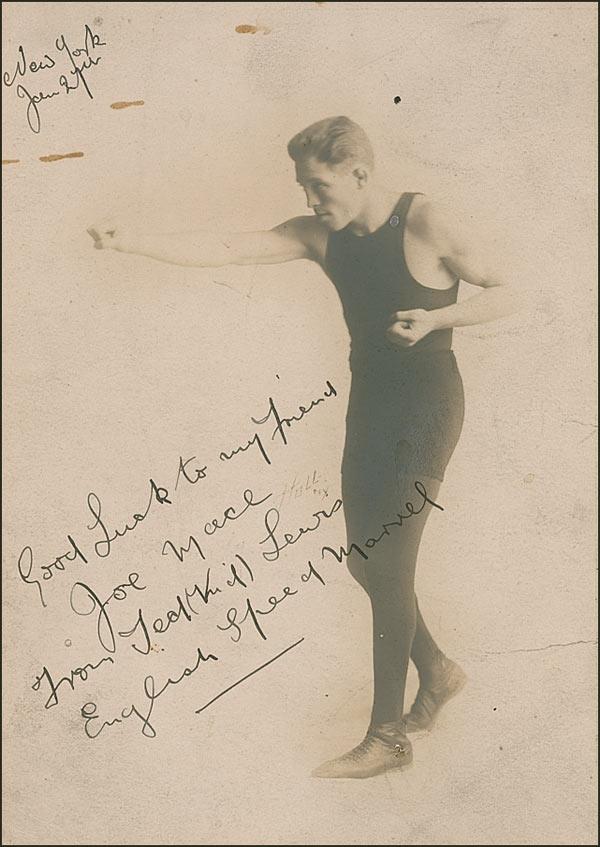 New York
Jan 27th
Good Luck to my friend
Joe Mace
From Ted (Kid) Lewis
English Speed Marvel